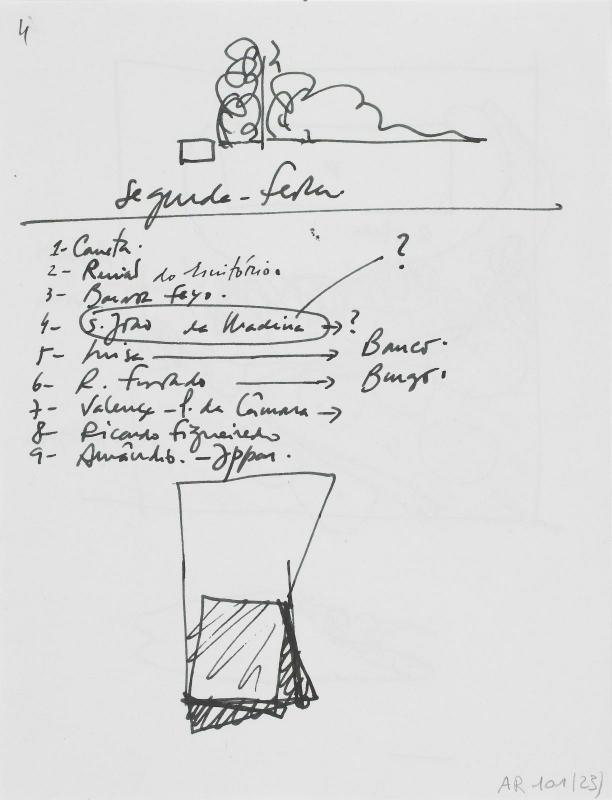 4
segunda-feira
1- Caneta.
2- Reunião do Escritório.
3- Barros Feyo.
?
4- S. João da Madeira → ?
5- Luisa → Banco.
6- R. Furtado → Burgo.
7- Valença - P. da Câmara →
8- Ricardo Figueiredo
9- Amândio. - Ippar.
AR 101/23